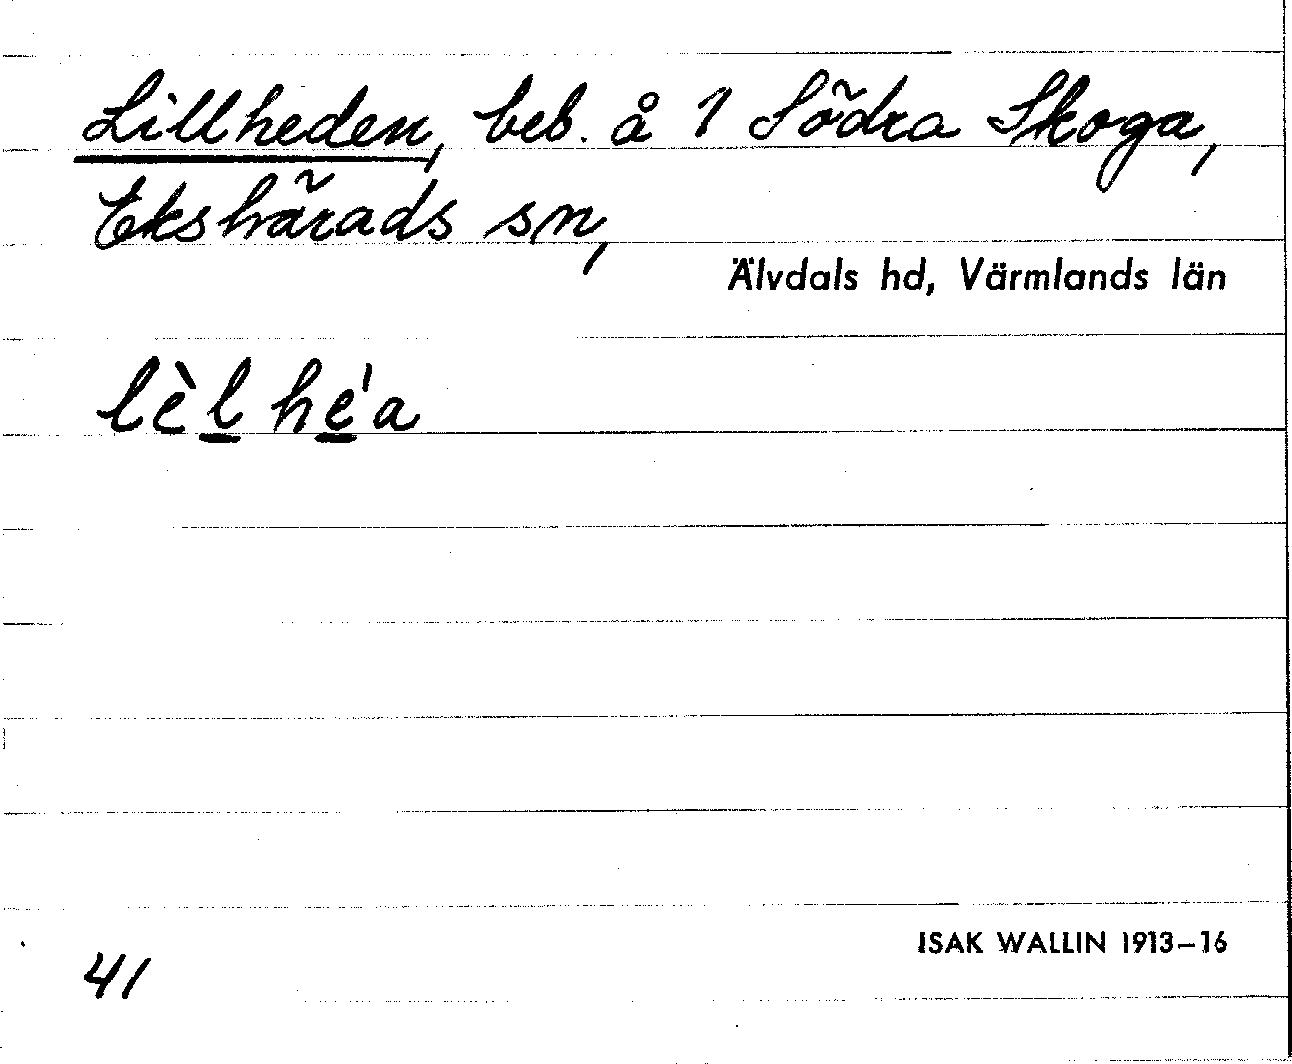 Lillheden, beb. å 1 Södra Skoga,
Ekshärads sn,
Älvdals hd, Värmlands län
lèl hé'a
ISAK WALLIN 1913–16
41